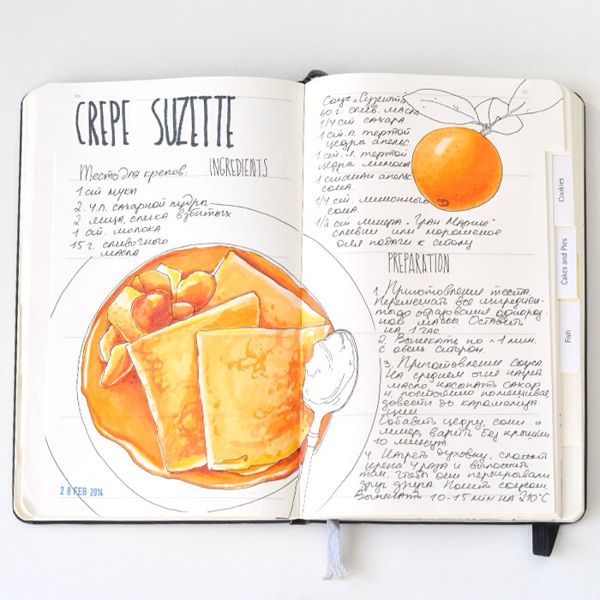 CREPE SUZETTE
INGREDIENTS
Тесто для крепов:
1 ст муки
2 ч.л. сахарной пудры
2 яйца, слегка взбитых
1 ст. молока
15 г. сливочного
масла
28 FEB 2014
Соус „Сузетт“
60 г слив. масла
1/4 ст сахара
1 ст. л. тертой
цедры апельс.
1 ст. л. тертой
цедры лимона
1 стакан апельс.
сока.
1/4 ст лимонного
сока.
1/2 ст ликера "Гран Марнье"
сливки или мороженое
для подачи к столу
PREPARATION
1. Приготовление теста.
Перемешать все ингредиен-
ты до образования однород-
ной массы. Оставить
на 1 час.
2. Выпекать по ~1 мин
с обеих сторон.
3. Приготовление соуса
На среднем огне нагреть
масло насыпать сахар
и постоянно помешивая
довести до карамелиза
ции
Добавить цедру, соки и
ликер, варить без крышки
10 минут
4. Нагреть духовку, сложить
крепы 4 раза и выложить
так, чтобы они перекрывали
друг друга. Полить соусом.
Выпекать 10-15 мин на 210°C
Cookies
Cakes and Pies
Fish